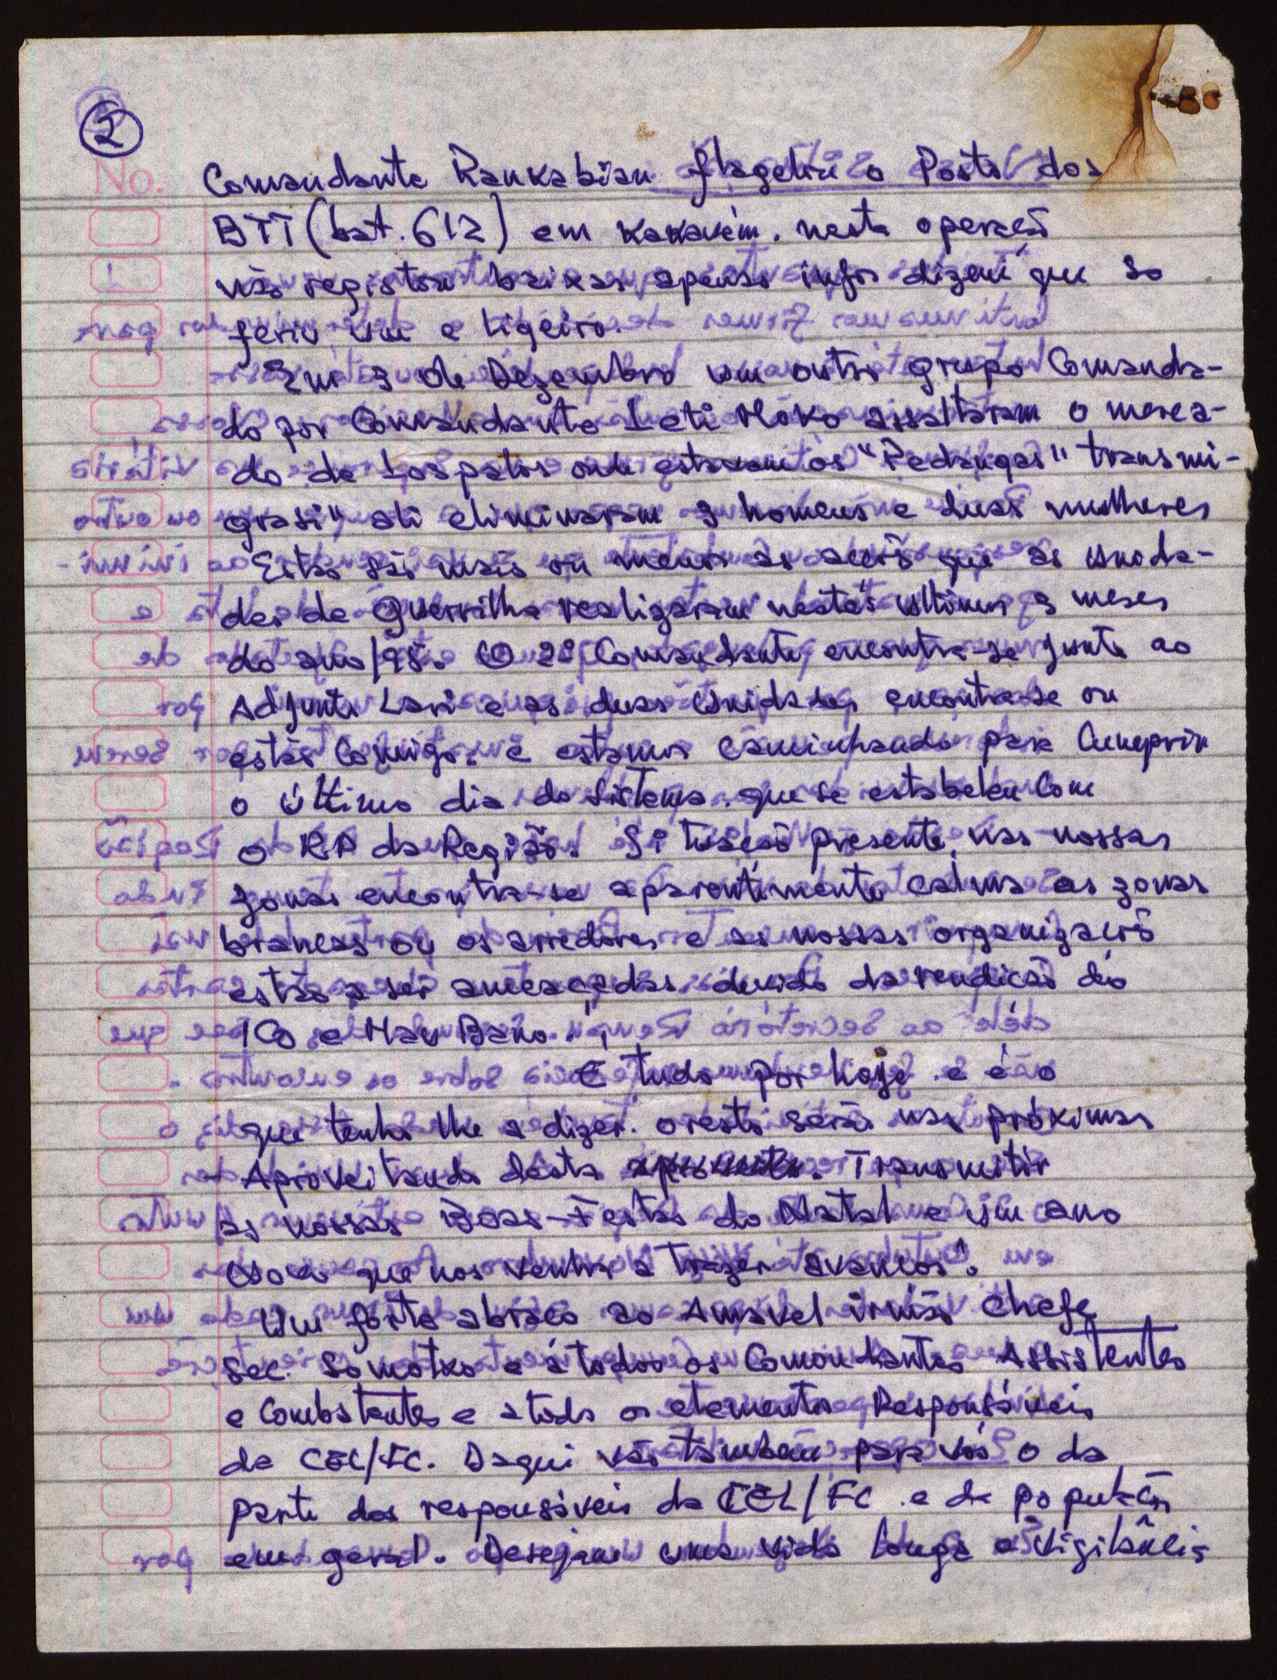 2
No.
Comandante Rankabian flagelou o Posto dos
BTT (bat. 612) em Kakavém. nesta operação
não registou baixas apenas infor dizem que so
feriu um e ligeiro.
Em 3 de Dezembro um outro grupo Comanda-
do por Comandante Leti Moko assaltaram o merca-
do de Lospalos onde estavam os "Pedangas" transmi-
grasi" ali eliminaram 3 homens e duas mulheres
Estas são mais ou menos as acções que as unida-
des de Guerrilha realizaram nestes ultimos 3 meses
do ano/98. O 2º Comandante encontra-se junto ao
Adjunto Lari e as duas Unidades encontra-se ou
estão Comigo. e estamos caminhando para Cumprir
o último dia do Sistema que se estabeleu Com
o RP da Região. Situação presente nas nossas
zonas encontra-se aparentimente calma as zonas
brancas ou os arredores e as nossas organizações
estão a ser ameaçadas devido da rendição do
e Mau
É tudo por hoje e é o
que tenho lhe a dizer. o resto será nas próximas
Aproveitando desta Transmitir
as nossas Boas-Festas do Natal e um ano
que nos venha a trazer avanços.
Um forte abraço ao Amável irmão Chefe
Sec. Somotxo e á todos os Comandantes Assistentes
e Combatentes e a todos os elementos Responsáveis
da CEL/FC. Daqui vão também para vós o da
parte dos responsáveis da CEL/FC. e da população
em geral. Desejam uma vida longa e Vigilância